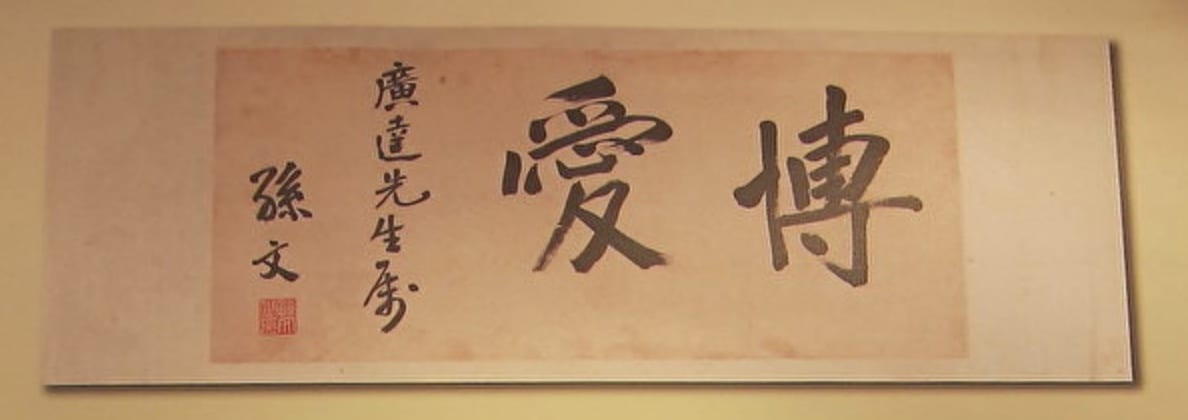 博愛
廣達先生属
孫文